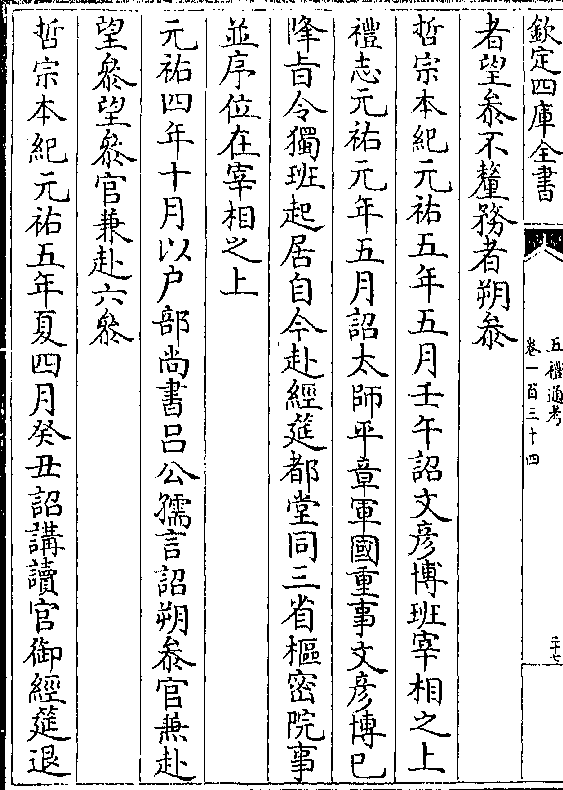 欽定四庫全書
五禮通考
卷一百三十四
三十七
者望叅不釐務者朔叅
哲宗本紀元祐五年五月壬午詔文彦博班宰相之上
禮志元祐元年五月詔太師平章軍國重事文彦博已
降㫖令獨班起居自今赴經筵都堂同三省樞密院事
並序位在宰相之上
元祐四年十月以户部尚書吕公孺言詔朔叅官兼赴
望叅望叅官兼赴六叅
哲宗本紀元祐五年夏四月癸丑詔講讀官御經筵退